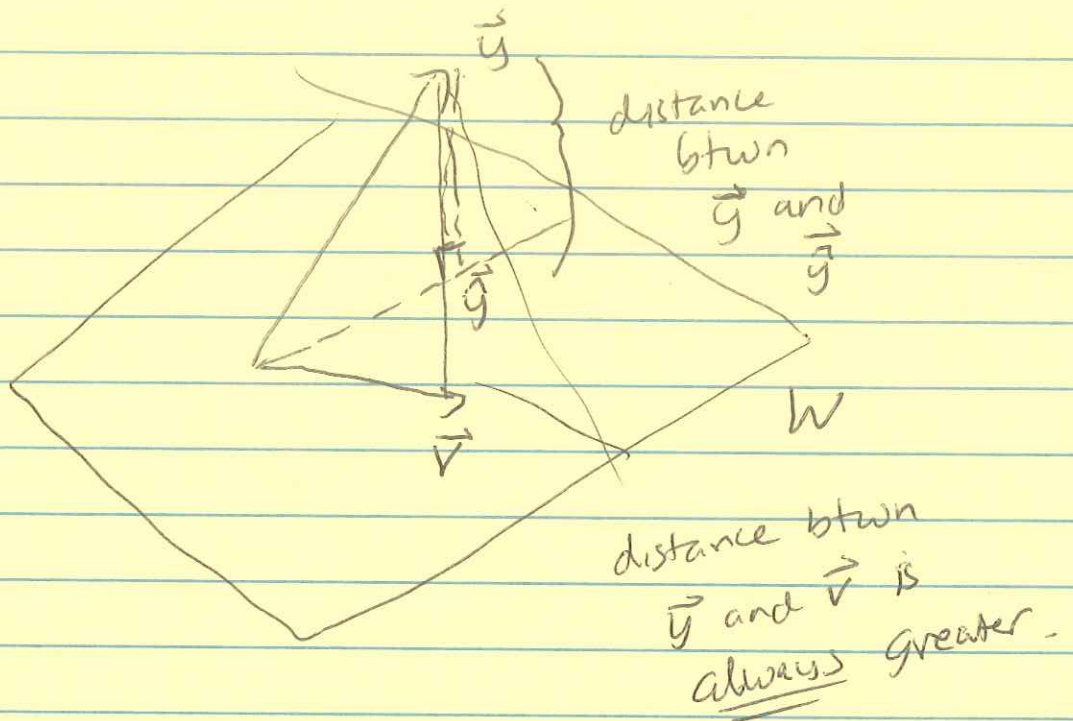 y⃗
distance
btwn
y⃗ and
y⃗
ŷ
W
v⃗
distance btwn
y⃗ and v⃗ is
always greater.